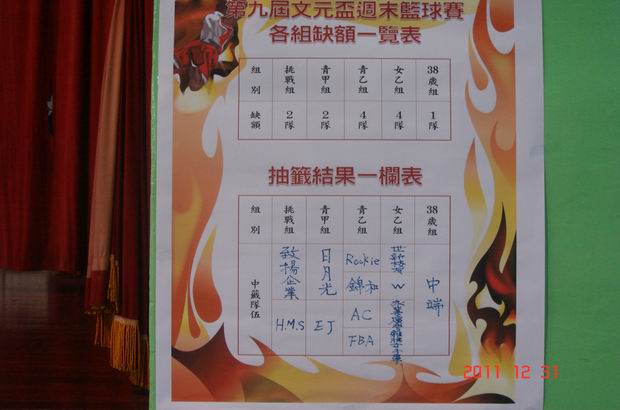 第九屆文元盃週末籃球賽
各組缺額一覽表
組別 挑戰組 青甲組 青乙組 女乙組 38歲組
缺額 2隊 2隊 4隊 4隊 1隊
抽籤結果一欄表
組別 挑戰組 青甲組 青乙組 女乙組 38歲組
中籤隊伍
敦揚企業 日月光 Rookie 世新
錦和 W 中端
H.M.S EJ AC
FBA
2011 12 31